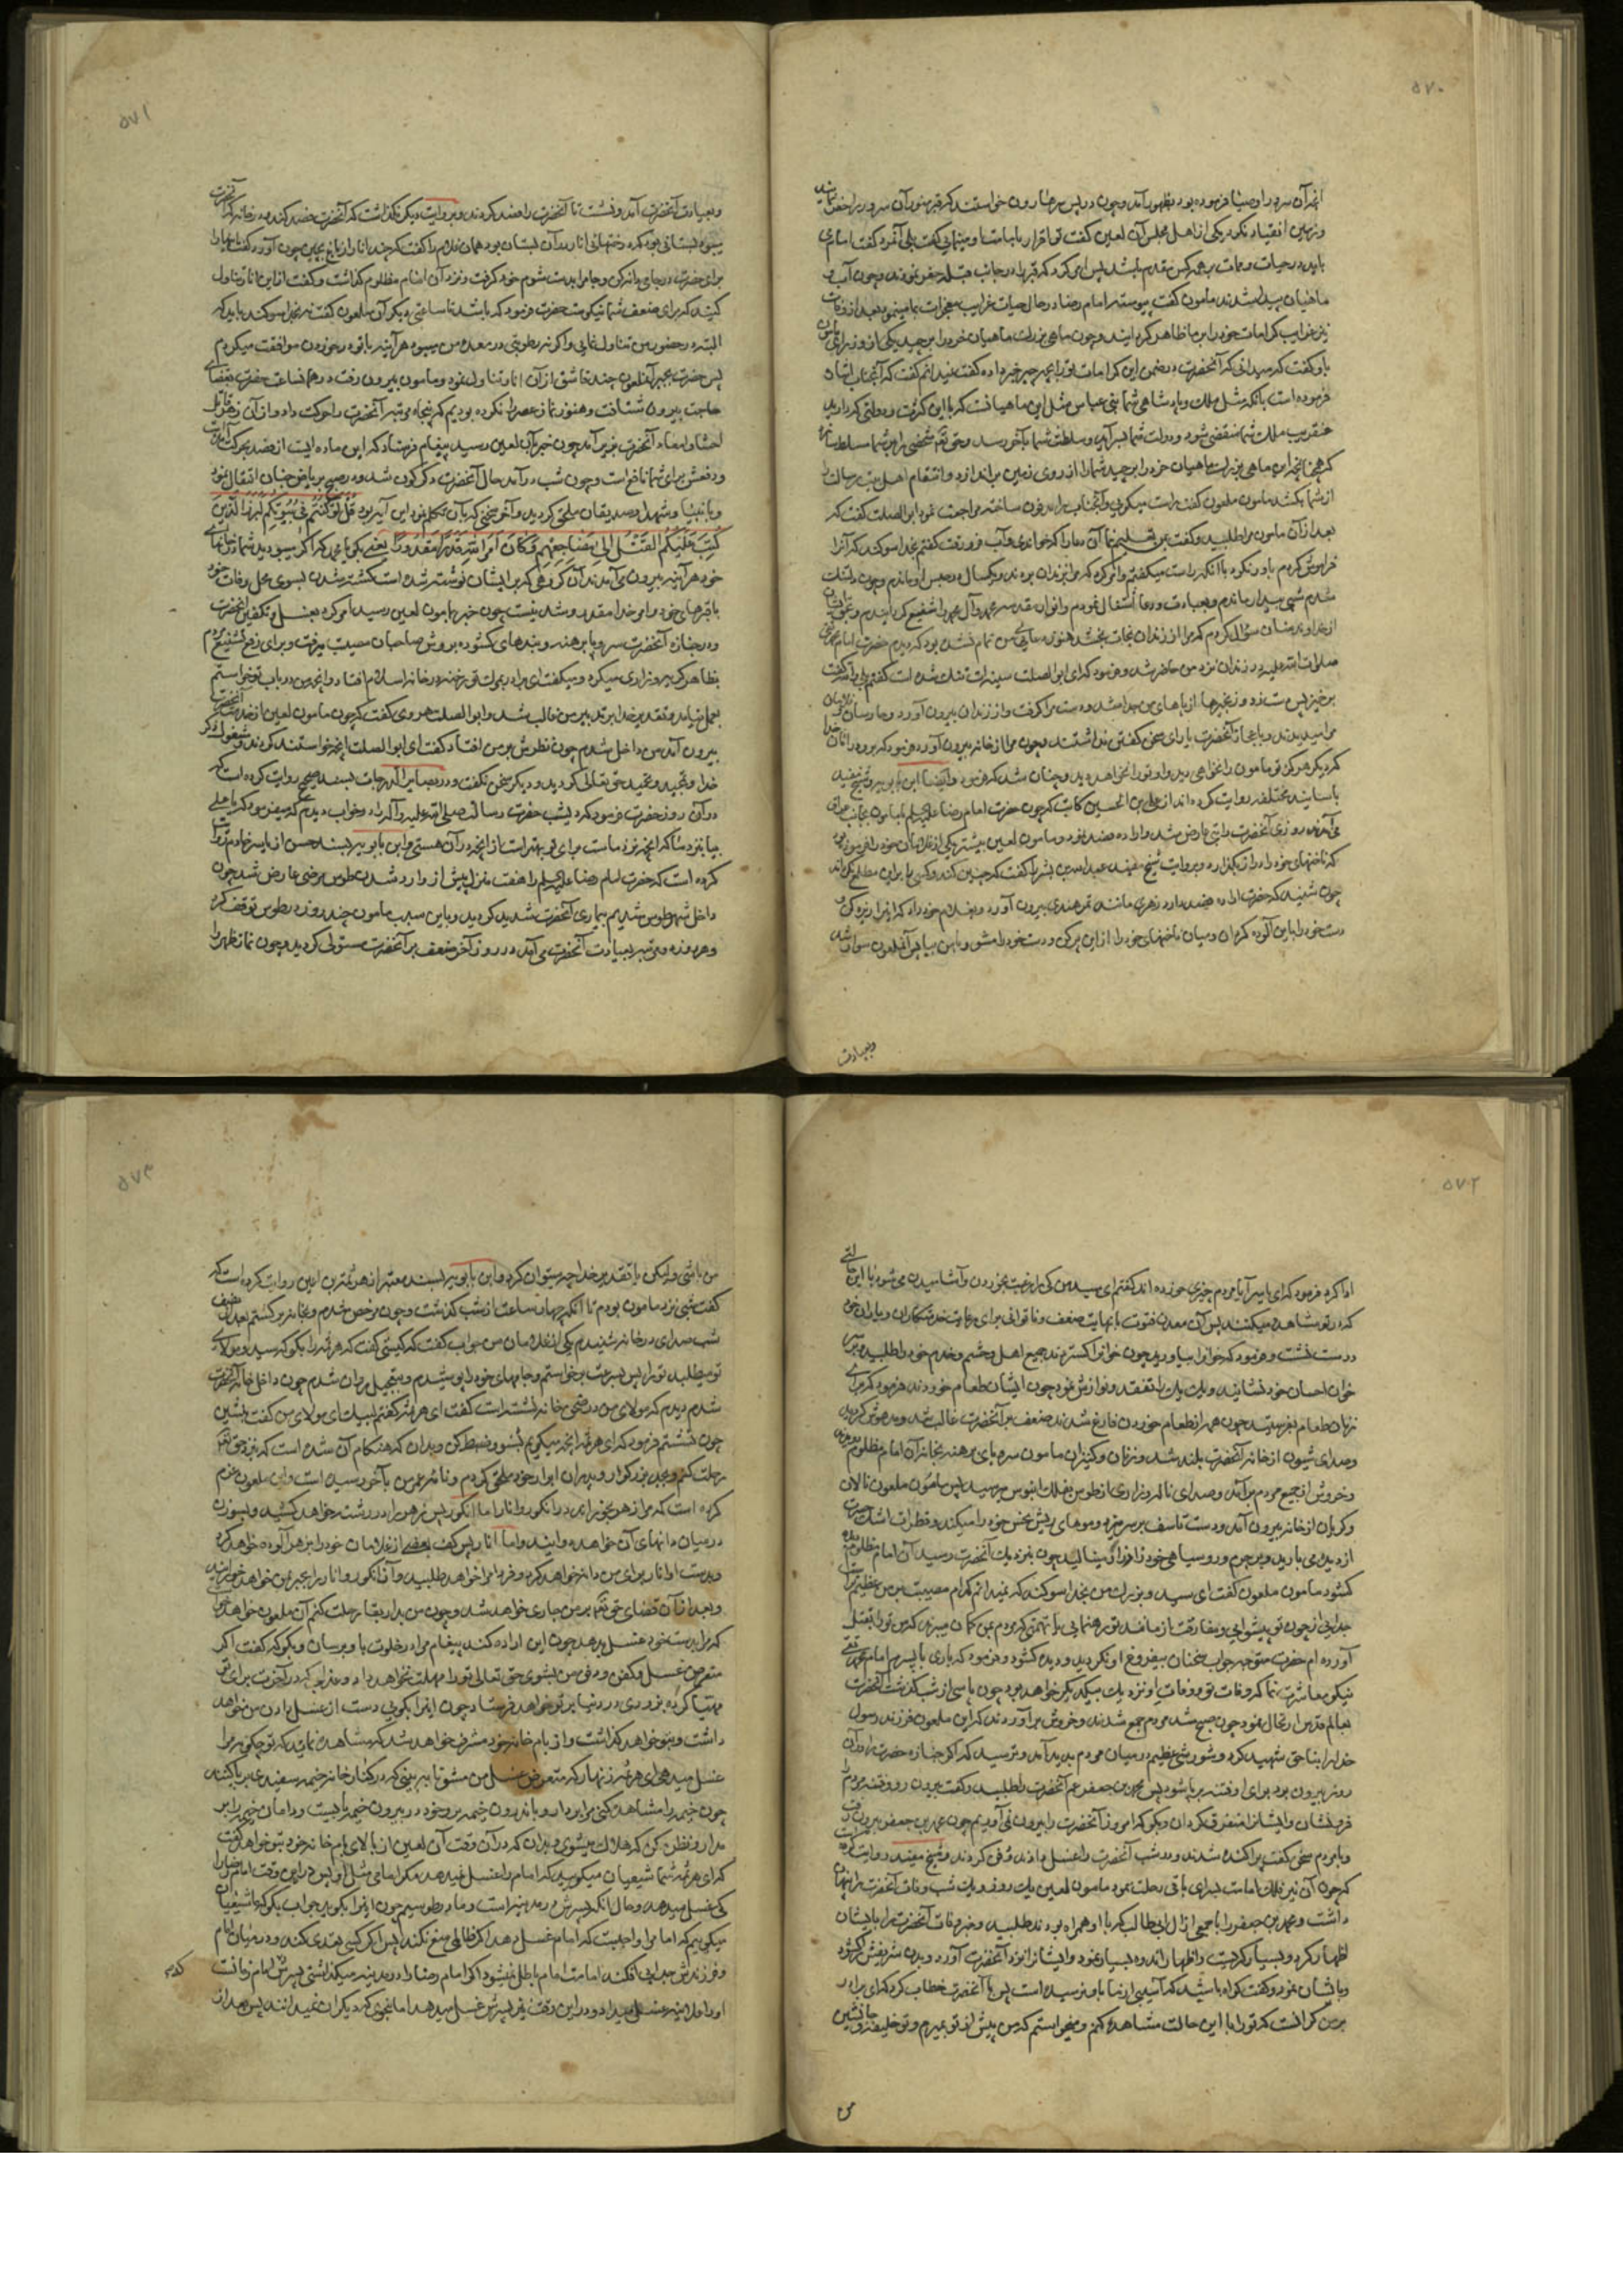 ۵۷۰
انچه آن سرور را وصیا فرموده بود بظهور آمد و چون در پس سر هارون خواستند که قبر منور آن سرور را حفر نمایند
زمین انقیاد نکرد یکی از اهل مجلس آن لعین گفت تو اقرار بامامت او مینمائی گفت بلی آنمرد گفت امام می
باید در حیات و ممات بر همه کس مقدم باشد پس امر کرد که قبر را در جانب قبله حفر نمودند و چون آب و
ماهیان پیدا شدند مامون گفت پیوسته امام رضا در حال حیات غرایب معجزات بما مینمود بعد از وفات
نیز غرایب کرامات خود را بر ما ظاهر کردانید و چون ماهی بزرك ماهیان خورد را بر چید یکی از وزرای مامون
باو گفت که میدانی که آنحضرت در ضمن این کرامات تو را بچه چیز خبر داده گفت نمیدانم گفت که آنجناب اشاره
فرموده است بانکه مثل ملك و پادشاهی شما بنی عباس مثل این ماهیانست که با این کثرت و دولتی که دارید
عنقریب ملك شما منقضی شود و دولت شما بسر آید و سلطنت شما بآخر رسد و حق تعالی شخصی را بر شما مسلط سازد
که همچنانچه این ماهی بزرك ماهیان خورد را بر چید شما را از روی زمین براندازد و انتقام اهل بیت رسالت را
از شما بکشد مامون ملعون گفت راست میگوئی و آنجناب را مدفون ساخته مراجعت نمود ابو الصلت گفت که
بعد از آن مامون مرا طلبید و گفت بمن تعلیم نما آن دعا را که خواندی و آب فرو رفت گفتم بخدا سوکند که آنرا
فراموش کردم باور نکرد با آنکه راست میکفتم و امر کرد که مرا بزندان بردند و یکسال در حبس او ماندم و چون دلتنك
شدم شبی بیدار ماندم و بعبادت و دعا اشتغال نمودم و انوار مقدسه محمد و آل محمد را شفیع کردانیدم و بحق ایشان
از خداوند منان سؤال کردم که مرا از زندان نجات بخشد هنوز دعای من تمام نشده بود که دیدم حضرت امام محمد تقی
صلوات الله علیه در زندان نزد من حاضر شد و فرمود که ای ابو الصلت سینه ات تنك شده است گفتم بلی والله گفت
برخیز پس دست زد و زنجیرها از پاهای من جدا شد و دست مرا گرفت و از زندان بیرون آورد و حارسان و غلامان
مرا میدیدند و باعجاز آنحضرت یارای سخن گفتن نداشتند و چون مرا از خانه بیرون آورد فرمود که برو در امان خدا
که دیگر هرکز تو مامون را نخواهی دید و او تو را نخواهد دید و چنان شد که فرمود و ایضا ابن بابویه و شیخ مفید
باسانید مختلفه روایت کرده اند از علی بن الحسین کاتب که چون حضرت امام رضا علیه السلم با مامون بجانب عراق
می آمدند روزی آنحضرت را تبی عارض شد و اراده فصد نمود و مامون لعین پیشتر یکی از غلامان خود را فرموده بود
که ناخنهای خود را دراز بکذارد و بروایت شیخ مفید عبد الله بن بشیر را گفت که چنین کند و کسی را بر این مطلع نکرداند
چون شنید که حضرت اراده فصد دارد زهری مانند تمر هندی بیرون آورد و بغلام خود داد که اینرا ریزه کن و
دست خود را باین آلوده کردان و میان ناخنهای خود را از این پر کن و دست خود را مشو و با من بیا پس آنملعون سوار شد
و بعیادت
۵۷۱
و بعیادت آنحضرت آمد و نشست تا آنحضرت را فصد کردند و بروایت دیگر نکذاشت که آنحضرت فصد کند و در خانه که آنحضرت
میبود بستانی بود که درختهای انار در آن بستان بود همان غلام را گفت که چند انار از باغ بچین چون آورد گفت اینها را
برای حضرت در جامی دانه کن و جام را بدست شوم خود گرفت و نزد آن امام مظلوم گذاشت و گفت از این انار تناول
کنید که برای ضعف شما نیکوست حضرت فرمود که باشد تا ساعتی دیگر آن ملعون گفت نه بخدا سوکند باید که
البته در حضور من تناول نمایی و اکر نه رطوبتی در معده من میبود هر آینه با تو در خوردن موافقت میکردم
پس حضرت بجبر آنملعون چند قاشق از آن انار تناول نمود و مامون بیرون رفت و در همان ساعت حضرت بقضای
حاجت بیرون شتافت و هنوز نماز عصر را نکرده بودیم که پنجاه مرتبه آنحضرت را حرکت داد و از آن زهر قاتل
احشا و امعاء آنحضرت بزیر آمد چون خبر بآن لعین رسید پیغام فرستاد که این ماده ایست از فصد بحرکت آمده است
و دفعش برای شما نافع است و چون شب در آمد حال آنحضرت دکرکون شد و در صبح بریاض جنان انتقال نمود
و بانبیا و شهدا و صدیقان ملحق کردید و آخر سخنی که بآن تکلم نمود این آیه بود قُلْ لَوْ كُنْتُمْ فِي بُيُوتِكُمْ لَبَرَزَ الَّذِينَ
كُتِبَ عَلَيْهِمُ الْقَتْلُ إِلَى مَضَاجِعِهِمْ وَكَانَ أَمْرُ اللَّهِ قَدَرًا مَقْدُورًا یعنی بکو یا محمد که اکر میبودید شما در خانهای
خود هر آینه بیرون می آمدند آن گروهی که بر ایشان نوشته شده است کشته شدن بسوی محل وفات خود
یا قبرهای خود و امر خدا مقدر و شدنیست چون خبر بمامون لعین رسید امر کرد بغسل و تکفین آنحضرت
و در جنازه آنحضرت سر و پا برهنه و بندهای کشوده بروش صاحبان مصیبت میرفت و برای رفع تشنیع مردم
بظاهر کریه و زاری میکرد و میکفت ای برادر بمرك تو رخنه در خانه اسلام افتاد و آنچه من در باب تو خواستم
بعمل نیامد و تقدیر خدا بر تدبیر من غالب شد و ابو الصلت هروی گفت که چون مامون لعین از خدمت آنحضرت
بیرون آمد من داخل شدم چون نظرش بر من افتاد گفت ای ابو الصلت آنچه خواستند کردند و مشغول ذکر
خدا و تمجید و تحمید حق تعالی کردید و دیگر سخن نکفت و در بصایر الدرجات بسند صحیح روایت کرده است که
در آن روز حضرت فرمود که دیشب حضرت رسالت صلی الله علیه و آله را در خواب دیدم که میفرمود که یا علی
بیا بنزد ما که آنچه نزد ماست برای تو بهتر است از آنچه در آن هستی و ابن بابویه بسند حسن از یاسر خادم روایت
کرده است که حضرت امام رضا علیه السلم را هفت منزل پیش از وارد شدن طوس مرضی عارض شد چون
داخل شهر طوس شدیم بیماری آنحضرت شدید کردید و باین سبب مامون چند روز در طوس توقف کرد
و هر روز دو مرتبه بعیادت آنحضرت می آمد در روز آخر ضعف بر آنحضرت مستولی کردید و چون نماز ظهر را
۵۷۲
ادا کرد فرمود که ای یاسر آیا مردم چیزی خورده اند گفتم ای سید من کی را رغبت بخوردن و آشامیدن می شود با این حالتی
که در تو مشاهده میکنند پس آن معدن فتوت با نهایت ضعف و ناتوانی برای رعایت خدمتکاران و یاران خود
درست نشست و فرمود که خوانرا بیاورید چون خوانرا کستردند جمیع اهل و حشم و خدم خود را طلبید و بر سر
خوان احسان خود نشانید و یك یك را تفقد و نوازش نمود چون ایشان طعام خوردند فرمود که برای
زنان طعام بفرستید چون همه از طعام خوردن فارغ شدند ضعف بر آنحضرت غالب شد و مدهوش کردید
و صدای شیون از خانه آنحضرت بلند شد و زنان و کنیزان مامون سر و پای برهنه بخانه آن امام مظلوم دویدند
و خروش از جمیع مردم بر آمد و صدای ناله و زاری از طوس بفلك آبنوس میرسید پس مامون ملعون نالان
و کریان از خانه بیرون آمد و دست تاسف بر سر میزد و موهای ریش نحس خود را میکند و قطرات اشك حسرت
از دیده می بارید و بر جرم و روسیاهی خود زار زار مینالید چون بنزدیك آنحضرت رسید آن امام مظلوم دیده
کشود مامون ملعون گفت ای سید و بزرك من بخدا سوکند که نمیدانم کدام مصیبت بر من عظیم تر است
جدایی از چون تو پیشوایی و مفارقت از مانند تو رهنمایی یا تهمتی که مردم بمن کمان میبرند که من تو را بقتل
آورده ام حضرت متوجه جواب سخنان بیفروغ او نکردید و دیده کشود و فرمود که باری با پسرم امام محمد تقی
نیکو معاشرت نما که وفات تو و وفات او نزدیك بیکدیکر خواهد بود چون پاسی از شب گذشت آنحضرت
بعالم قدس ارتحال نمود چون صبح شد مردم جمع شدند و خروش بر آوردند که این ملعون فرزند رسول
خدا را بناحق شهید کرد و شورش عظیم در میان مردم پدید آمد و ترسید که اکر جنازه حضرت را در آن
روز بیرون برد برای او فتنه برپا شود پس محمد بن جعفر عم آنحضرت را طلبید و گفت بیرون رو و فتنه مردم را
فرو نشان و ایشانرا متفرق کردان و بکو که امروز آنحضرت را بیرون نمی آوریم چون محمد بن جعفر بیرون رفت
و با مردم سخن گفت پراکنده شدند و در شب آنحضرت را غسل دادند و دفن کردند و شیخ مفید روایت کرده
که چون آن نیر فلك امامت بسرای باقی رحلت نمود مامون لعین یك روز و یك شب وفات آنحضرت را پنهان
داشت و محمد بن جعفر را با جمعی از آل ابی طالب که با او همراه بودند طلبید و خبر وفات آنحضرت را بایشان
اظهار کرد و بسیار گریست و اظهار اندوه بسیار نمود و ایشانرا نزد آنحضرت آورد و بدن شریفش کشود
و بایشان نمود و گفت کواه باشید که آسیبی از ما باو نرسیده است پس با آنحضرت خطاب کرد که ای برادر
بر من کرانست که تو را با این حالت مشاهده کنم و میخواستم که من پیش از تو بمیرم و تو خلیفه و جانشین
من
۵۷۳
من باشی ولیکن با تقدیر خدا چه میتوان کرد و ابن بابویه بسند معتبر از هرثمة بن اعین روایت کرده است که
گفت شبی نزد مامون بودم تا آنکه چهار ساعت از شب گذشت و چون مرخص شدم و بخانه برکشتم بعد از نصف
شب صدای در خانه شنیدم یکی از غلامان من جواب گفت که کیستی گفت که هرثمه را بکو که سید و مولای
تو میطلبد تو را پس بسرعت برخواستم و جامهای خود را پوشیدم و بتعجیل روان شدم چون داخل خانه آنحضرت
شدم دیدم که مولای من در صحن خانه نشسته است گفت ای هرثمه گفتم لبیك ای مولای من گفت بنشین
چون نشستم فرمود که ای هرثمه آنچه میکویم بشنو و ضبط کن و بدان که هنکام آن شده است که نزد حق تعالی
رحلت کنم و بجد بزرکوار و پدران ابرار خود ملحق کردم و نامه عمر من بآخر رسیده است و این ملعون عزم
کرده است که مرا زهر بخوراند در انکور و انار اما انکور پس زهر را در رشته خواهد کشید و بسوزن
در میان دانهای آن خواهد دوانید و اما انار پس کف بعضی از غلامان خود را بزهر آلوده خواهد کرد
و بدست او انار برای من دانه خواهد کرد و فردا مرا خواهد طلبید و آن انکور و انار را بجبر بمن خواهد خورانید
و بعد از آن قضای حق تعالی بر من جاری خواهد شد و چون من بدار بقا رحلت کنم آن ملعون خواهد خواست
که مرا بدست خود غسل بدهد چون این اراده کند پیغام مرا در خلوت باو برسان و بکو که گفت اکر
متعرض غسل و کفن و دفن من بشوی حق تعالی تو را مهلت نخواهد داد و عذابی که در آخرت برای تو
مهیا کرده بزودی در دنیا بر تو خواهد فرستاد چون اینرا بکویی دست از غسل دادن من خواهد
داشت و بتو خواهد گذاشت و از بام خانه خود مشرف خواهد شد که مشاهده نماید که تو چکونه مرا
غسل میدهی ای هرثمه زنهار که متعرض غسل من مشو تا ببینی که در کنار خانه خیمه سفیدی بر پا کنند
چون خیمه را مشاهده کنی مرا بردار و باندرون خیمه بر و خود در بیرون خیمه بایست و دامان خیمه را بر
مدار و نظر مکن که هلاك میشوی و بدان که در آن وقت آن لعین از بالای بام خانه خود بتو خواهد گفت
که ای هرثمه شما شیعیان میکویید که امام را غسل نمیدهد مکر امامی مثل او پس در این وقت امام رضا را
کی غسل میدهد و حال آنکه پسرش در مدینه است و ما در طوسیم چون اینرا بکوید جواب بکو که ما شیعیان
میکوییم که امام را واجبست که امام غسل دهد اکر ظالمی منع نکند پس اکر کسی تعدی کند و در میان امام
و فرزندش جدایی افکند امامت امام باطل نمیشود اکر امام رضا را در مدینه میکذاشتی پسرش که امام زمانست
او را علانیه غسل میداد و در این وقت نیز پسرش غسل میدهد اما بنحوی که دیگران نمیدانند پس بعد از